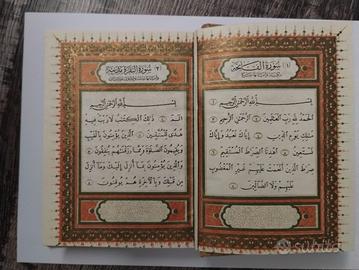 (١) سورة الفاتحة
بسم الله الرحمن الرحيم ①
الحمد لله رب العلمين ② الرحمن الرحيم ③
ملك يوم الدين ④ إياك نعبد وإياك
نستعين ⑤ اهدنا الصرط المستقيم ⑥
صرط الذين أنعمت عليهم غير المغضوب
عليهم ولا الضالين ⑦
(٢) سورة البقرة مدنية
بسم الله الرحمن الرحيم
الم ① ذلك الكتب لا ريب فيه
هدى للمتقين ② الذين يؤمنون بالغيب
ويقيمون الصلوة ومما رزقنهم ينفقون ③
والذين يؤمنون بما أنزل إليك وما أنزل
من قبلك وبالآخرة هم يوقنون ④
subito